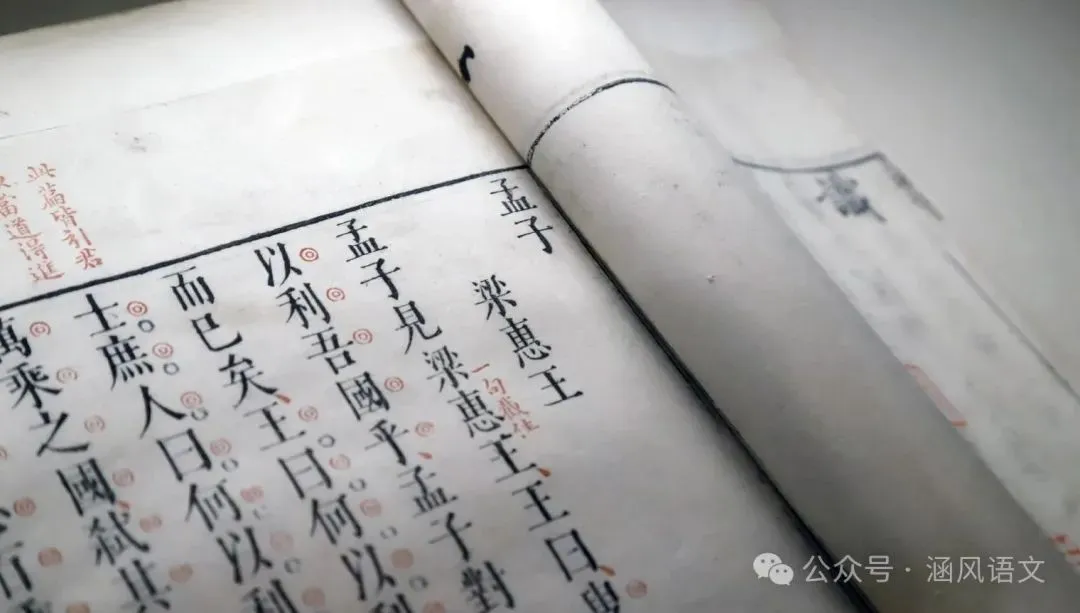 孟子
梁惠王
孟子見梁惠王王曰叟
一句截住
以利吾國乎孟子對
而已矣王曰何以利
士庶人曰何以利
萬乘之國弒其
此篇皆引君
當道得進
公众号 · 涵风语文